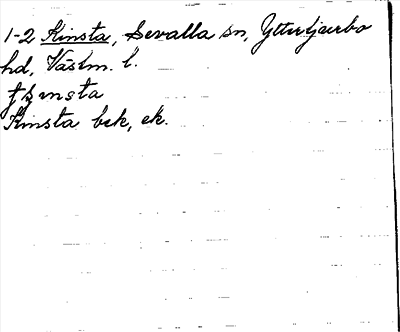 1-2 Kinsta, Sevalla sn, Yttertjurbo
hd, Västm. l.
Kinsta bek, ek.